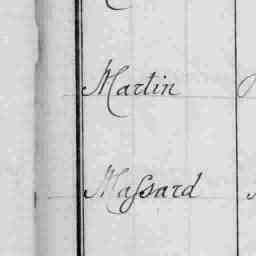 Martin
Maſsard